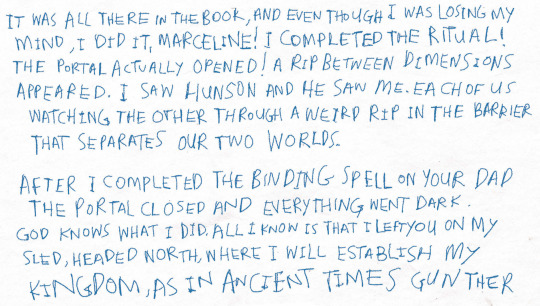 IT WAS ALL THERE IN THE BOOK, AND EVEN THOUGH I WAS LOSING MY
MIND, I DID IT, MARCELINE! I COMPLETED THE RITUAL!
THE PORTAL ACTUALLY OPENED! A RIP BETWEEN DIMENSIONS
APPEARED. I SAW HUNSON AND HE SAW ME. EACH OF US
WATCHING THE OTHER THROUGH A WEIRD RIP IN THE BARRIER
THAT SEPARATES OUR TWO WORLDS.
AFTER I COMPLETED THE BINDING SPELL ON YOUR DAD
THE PORTAL CLOSED AND EVERYTHING WENT DARK.
GOD KNOWS WHAT I DID. ALL I KNOW IS THAT I LEFT YOU ON MY
SLED, HEADED NORTH, WHERE I WILL ESTABLISH MY
KINGDOM, AS IN ANCIENT TIMES GUNTHER